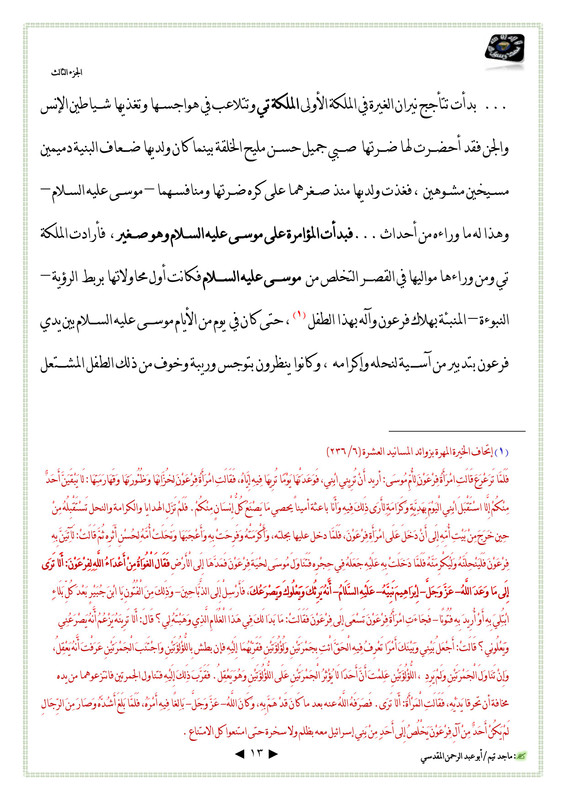 الجزء الثالث
... بدأت تتأجج نيران الغيرة في الملكة الأولى الملكة تي وتتلاعب في هواجسها وتغذيها شياطين الإنس
والجن فقد أحضرت لها ضرتها صبي جميل حسن مليح الخلقة بينما كان ولديها ضعاف البنية دميمين
مسيخين مشوهين ، فغذت ولديها منذ صغرهما على كره ضرتها ومنافسهما –موسى عليه السلام–
وهذا له ما وراءه من أحداث ... فبدأت المؤامرة على موسى عليه السلام وهو صغير ، فأرادت الملكة
تي ومن وراءها مواليها في القصر التخلص من موسى عليه السلام فكانت أول محاولاتها بربط الرؤية –
النبوءة – المنبئة بهلاك فرعون وآله بهذا الطفل (١) ، حتى كان في يوم من الأيام موسى عليه السلام بين يدي
فرعون بتدبير من آسية لنحله وإكرامه ، وكانوا ينظرون بتوجس وريبة وخوف من ذلك الطفل المشتعل
(١) إتحاف الخيرة المهرة بزوائد المسانيد العشرة (٦/ ٢٣٦)
فَلَمَّا تَرَعْرَعَ قَالَتِ امْرَأَةُ فِرْعَوْنَ لأُمِّ مُوسَى: أريد أَنْ تُرِيني ابْنِي، فَوَعَدَتْهَا يَوْمًا تُرِيهَا فِيهِ إِيَّاهُ، فَقَالَتِ امْرَأَةُ فِرْعَوْنَ لِخُزَّانِهَا وَظُئُورَتَهَا وَقَهَارِمَتِهَا: لَا يَبْقَيَنَّ أَحَدٌ
مِنْكُمْ إِلَّا اسْتَقْبَلَ ابْنِي الْيَوْمَ بِهَدِيَّةٍ وَكَرَامَةٍ لِأَرَى ذَلِكَ فِيهِ وَأَنَا باعثة أمينا يحصي مَا يَصْنَعُ كُلُّ إِنْسَانٍ مِنْكُمْ. فَلَمْ تزل الهدايا والكرامة والنحل تَسْتَقْبِلُهُ مِنْ
حين خَرَجَ مِنْ بَيْتِ أُمِّهِ إِلَى أَنْ دَخَلَ عَلَى امْرَأَةِ فِرْعَوْنَ، فَلَمَّا دخل عليها بجلته، وَأَكْرَمَتْهُ وَفَرِحَتْ بِهِ وَأَعْجَبَهَا وَنَحَلَتْ أُمَّهُ لِحُسْنِ أَثَرِهِ ثُمَّ قَالَتْ: لَآتِيَنَّ بِهِ
فِرْعَوْنَ فَلَيَنْحِلَنَّهُ وَلَيُكْرِمَنَّهُ فَلَمَّا دَخَلَتْ بِهِ عَلَيْهِ جَعَلَهُ فِي حِجْرِهِ فَتَنَاوَلَ مُوسَى لِحْيَةَ فِرْعَوْنَ فَمَدَّهَا إِلَى الْأَرْضِ فَقَالَ الْغُوَاةُ مِنْ أَعْدَاءِ اللَّهِ لِفِرْعَوْنَ: أَلَا تَرَى
إِلَى مَا وَعَدَ اللَّهُ– عَزَّ وَجَلَّ– إِبْرَاهِيمَ نَبِيَّهُ– عَلَيْهِ السَّلَامُ– أَنَّهُ يَرِثُكَ وَيَعْلُوكَ وَيَصْرَعُكَ، فَأَرْسَلَ إِلَى الذَّبَّاحِينَ– وَذَلِكَ مِنَ الْفُتُونِ يَا ابْنَ جُبَيْرٍ بَعْدَ كُلِّ بَلَاءٍ
ابْتُلِيَ بِهِ أَوْ أُرِيدَ بِهِ فُتُونًا– فَجَاءَتِ امْرَأَةُ فِرْعَوْنَ تَسْعَى إِلَى فِرْعَوْنَ فَقَالَتْ: مَا بَدَا لَكَ فِي هَذَا الْغُلَامِ الَّذِي وَهَبْتَهُ لِي؟ قَالَ: أَلَا تَرِينَهُ يَزْعُمُ أَنَّهُ يَصْرَعُنِي
وَيَعْلُونِي؟ قَالَتْ: أَجْعَلُ بَيْنِي وَبَيْنَكَ أَمْرًا تَعْرِفُ فِيهِ الْحَقَّ ائت بِجَمْرَتَيْنِ وَلُؤْلُؤَتَيْنِ فَقَرِّبْهُمَا إِلَيْهِ فَإِنْ بطش بِاللُّؤْلُؤَتَيْنِ وَاجْتَنَبَ الْجَمْرَتَيْنِ عَرَفْتَ أَنَّهُ يَعْقِلُ،
وَإِنْ تَنَاوَلَ الْجَمْرَتَيْنِ وَلَمْ يَرِدِ اللُّؤْلُؤَتَيْنِ عَلِمْتَ أَنَّ أَحَدًا لَا يُؤْثِرُ الْجَمْرَتَيْنِ عَلَى اللُّؤْلُؤَتَيْنِ وَهُوَ يَعْقِلُ. فَقَرَّبَ ذَلِكَ إِلَيْهِ فتناول الجمرتين فانتزعوهما من يده
مخافة أن تحرقا يديه، فَقَالَتِ الْمَرْأَةُ: أَلَا تَرَى. فَصَرَفَهُ اللَّهُ عنه بعد ما كان قَدْ هَمَّ بِهِ، وَكَانَ اللَّهُ– عَزَّ وَجَلَّ– بَالِغًا فِيهِ أَمْرَهُ، فَلَمَّا بَلَغَ أَشُدَّهُ وَصَارَ مِنَ الرِّجَالِ
لَمْ يَكُنْ أَحَدٌ مِنْ آلِ فِرْعَوْنَ يَخْلُصُ إِلَى أَحَدٍ مِنْ بَنِي إسرائيل معه بظلم ولا سخرة حتى امتنعوا كل الامتناع .
◄ ١٣ ►
: ماجد تيم / أبو عبد الرحمن المقدسي